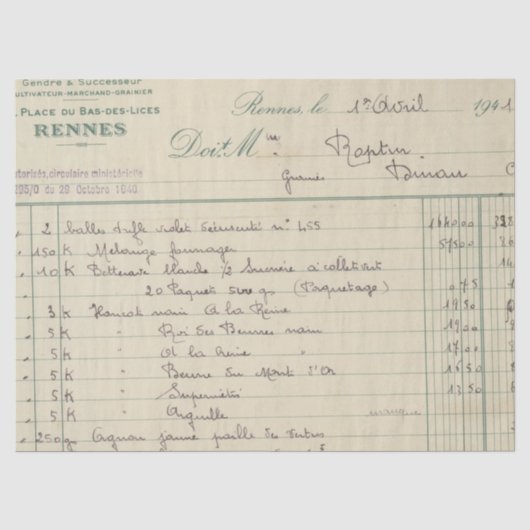 Gendre & Successeur
ULTIVATEUR-MARCHAND-GRAINIER
PLACE DU BAS-DES-LICES
RENNES
Rennes, le 1er Avril 1941
Doit, M me
Dinan
torisés, circulaire ministérielle
295/0 du 28 Octobre 1940
2 balles trèfle violet décuscuté n° 455 16400 328
150 K Mélange fourrager 5750 86
10 K Betterave blanche 1/2 Sucrière à collet vert 14
20 Paquet 500 gr (Paquetage) 075 1
3 K Haricot nain A la Reine 1950
5 K " Roi des Beurres nain 1900 9
5 K " A la Reine " 1700 8
5 K " Beurre du Mont d'Or 1650 8
5 K " 1350 6
5 K " Aiguille manque
250 g Oignon jaune paille des Vertus